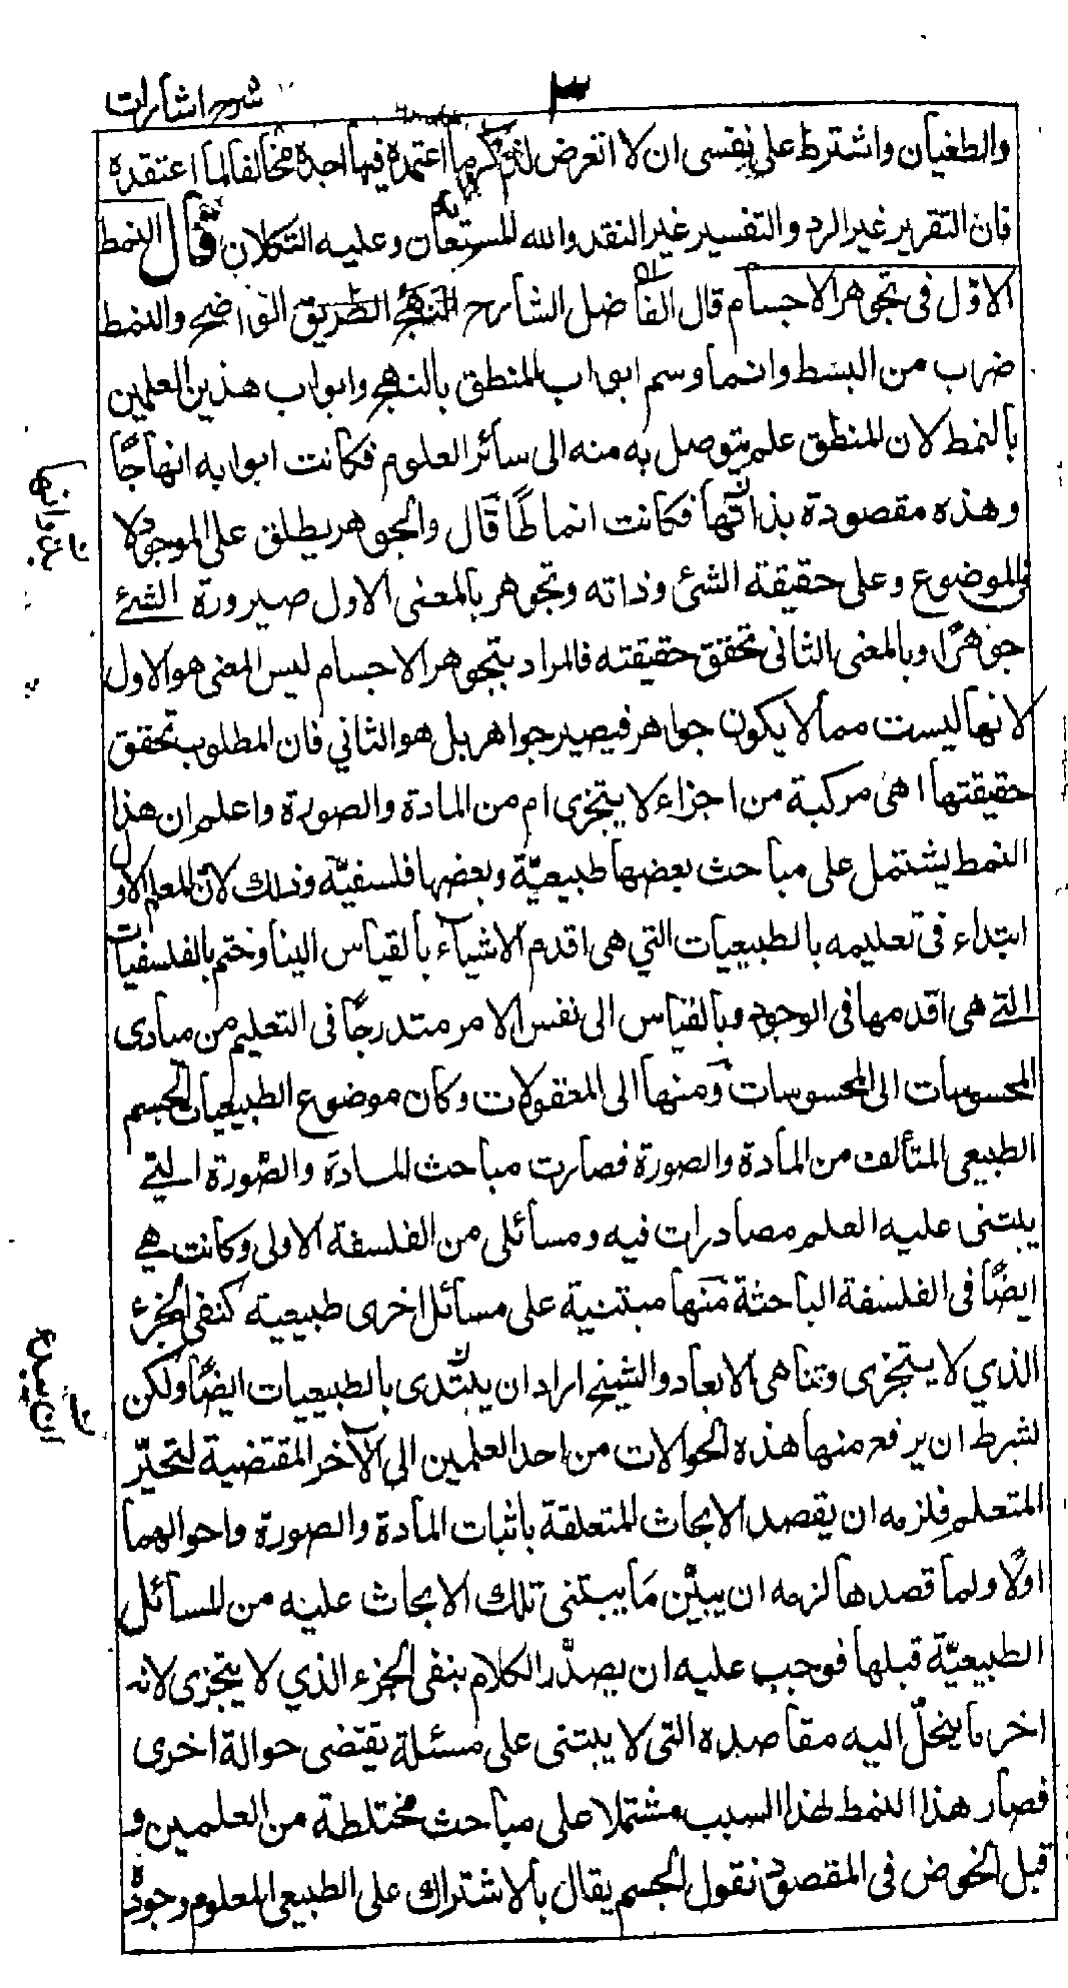 ٣
شرح اشارات
والطغيان واشترط على نفسى ان لا اتعرض لذكر ما اعتمده فيها اجده مخالفا لما اعتقده
فان التقرير غير الرد والتفسير غير النقد والله المستعان وعليه التكلان قال النمط
الاوّل فى تجوهر الاجسام قال الفاضل الشارح النهج الطريق الواضح والنمط
ضرب من البسط وانما وسم ابواب المنطق بالنهج وابواب هذين العلمين
بالنمط لان المنطق علم يتوصل به منه الى سائر العلوم فكانت ابوابه انهاجًا
وهذه مقصودة بذاتها فكانت انماطًا قال والجوهر يطلق على الموجود لا
فى الموضوع وعلى حقيقة الشئ وذاته وتجوهر بالمعنى الاول صيرورة الشئ
جوهرًا وبالمعنى الثانى تحقق حقيقته فالمراد بتجوهر الاجسام ليس المعنى هو الاول
لانها ليست مما لا يكون جواهر فيصير جواهر بل هو الثاني فان المطلوب تحقق
حقيقتها اهى مركبة من اجزاء لا يتجزى ام من المادة والصورة واعلم ان هذا
النمط يشتمل على مباحث بعضها طبيعيّة وبعضها فلسفيّة وذلك لان المعلم الاول
ابتداء فى تعليمه بالطبيعيات التي هى اقدم الاشياء بالقياس الينا وختم بالفلسفيات
التى هى اقدمها فى الوجود وبالقياس الى نفس الامر متدرجًا فى التعليم من مبادى
المحسوسات الى المحسوسات ومنها الى المعقولات وكان موضوع الطبيعيات الجسم
الطبيعى المتألف من المادة والصورة فصارت مباحث المادة والصّورة التى
يبتنى عليه العلم مصادرات فيه ومسائلى من الفلسفة الاولى وكانت هى
ايضًا فى الفلسفة الباحثة منها مبتنية على مسائل اخرى طبيعية كنفى الجزء
الذي لا يتجزى وتناهى الابعاد والشيخ اراد ان يبتدى بالطبيعيات ايضًا ولكن
لشرط ان يرفع منها هذه الحوالات من احد العلمين الى الآخر المقتضية لتحيّر
المتعلم فلزمه ان يقصد الابحاث المتعلقة باثبات المادة والصورة واحوالهما
اولًا ولما قصدها لزمه ان يبيّن ما يبتنى تلك الابحاث عليه من المسائل
الطبيعيّة قبلها فوجب عليه ان يصدّر الكلام بنفى الجزء الذي لا يتجزى لانه
اخر ما ينحلّ اليه مقاصده التى لا يبتنى على مسئلة يقتضى حوالة اخرى
فصار هذا النمط لهذا السبب مشتملا على مباحث مختلطة من العلمين و
قبل الخوض فى المقصود نقول الجسم يقال بالاشتراك على الطبيعى المعلوم وجوده